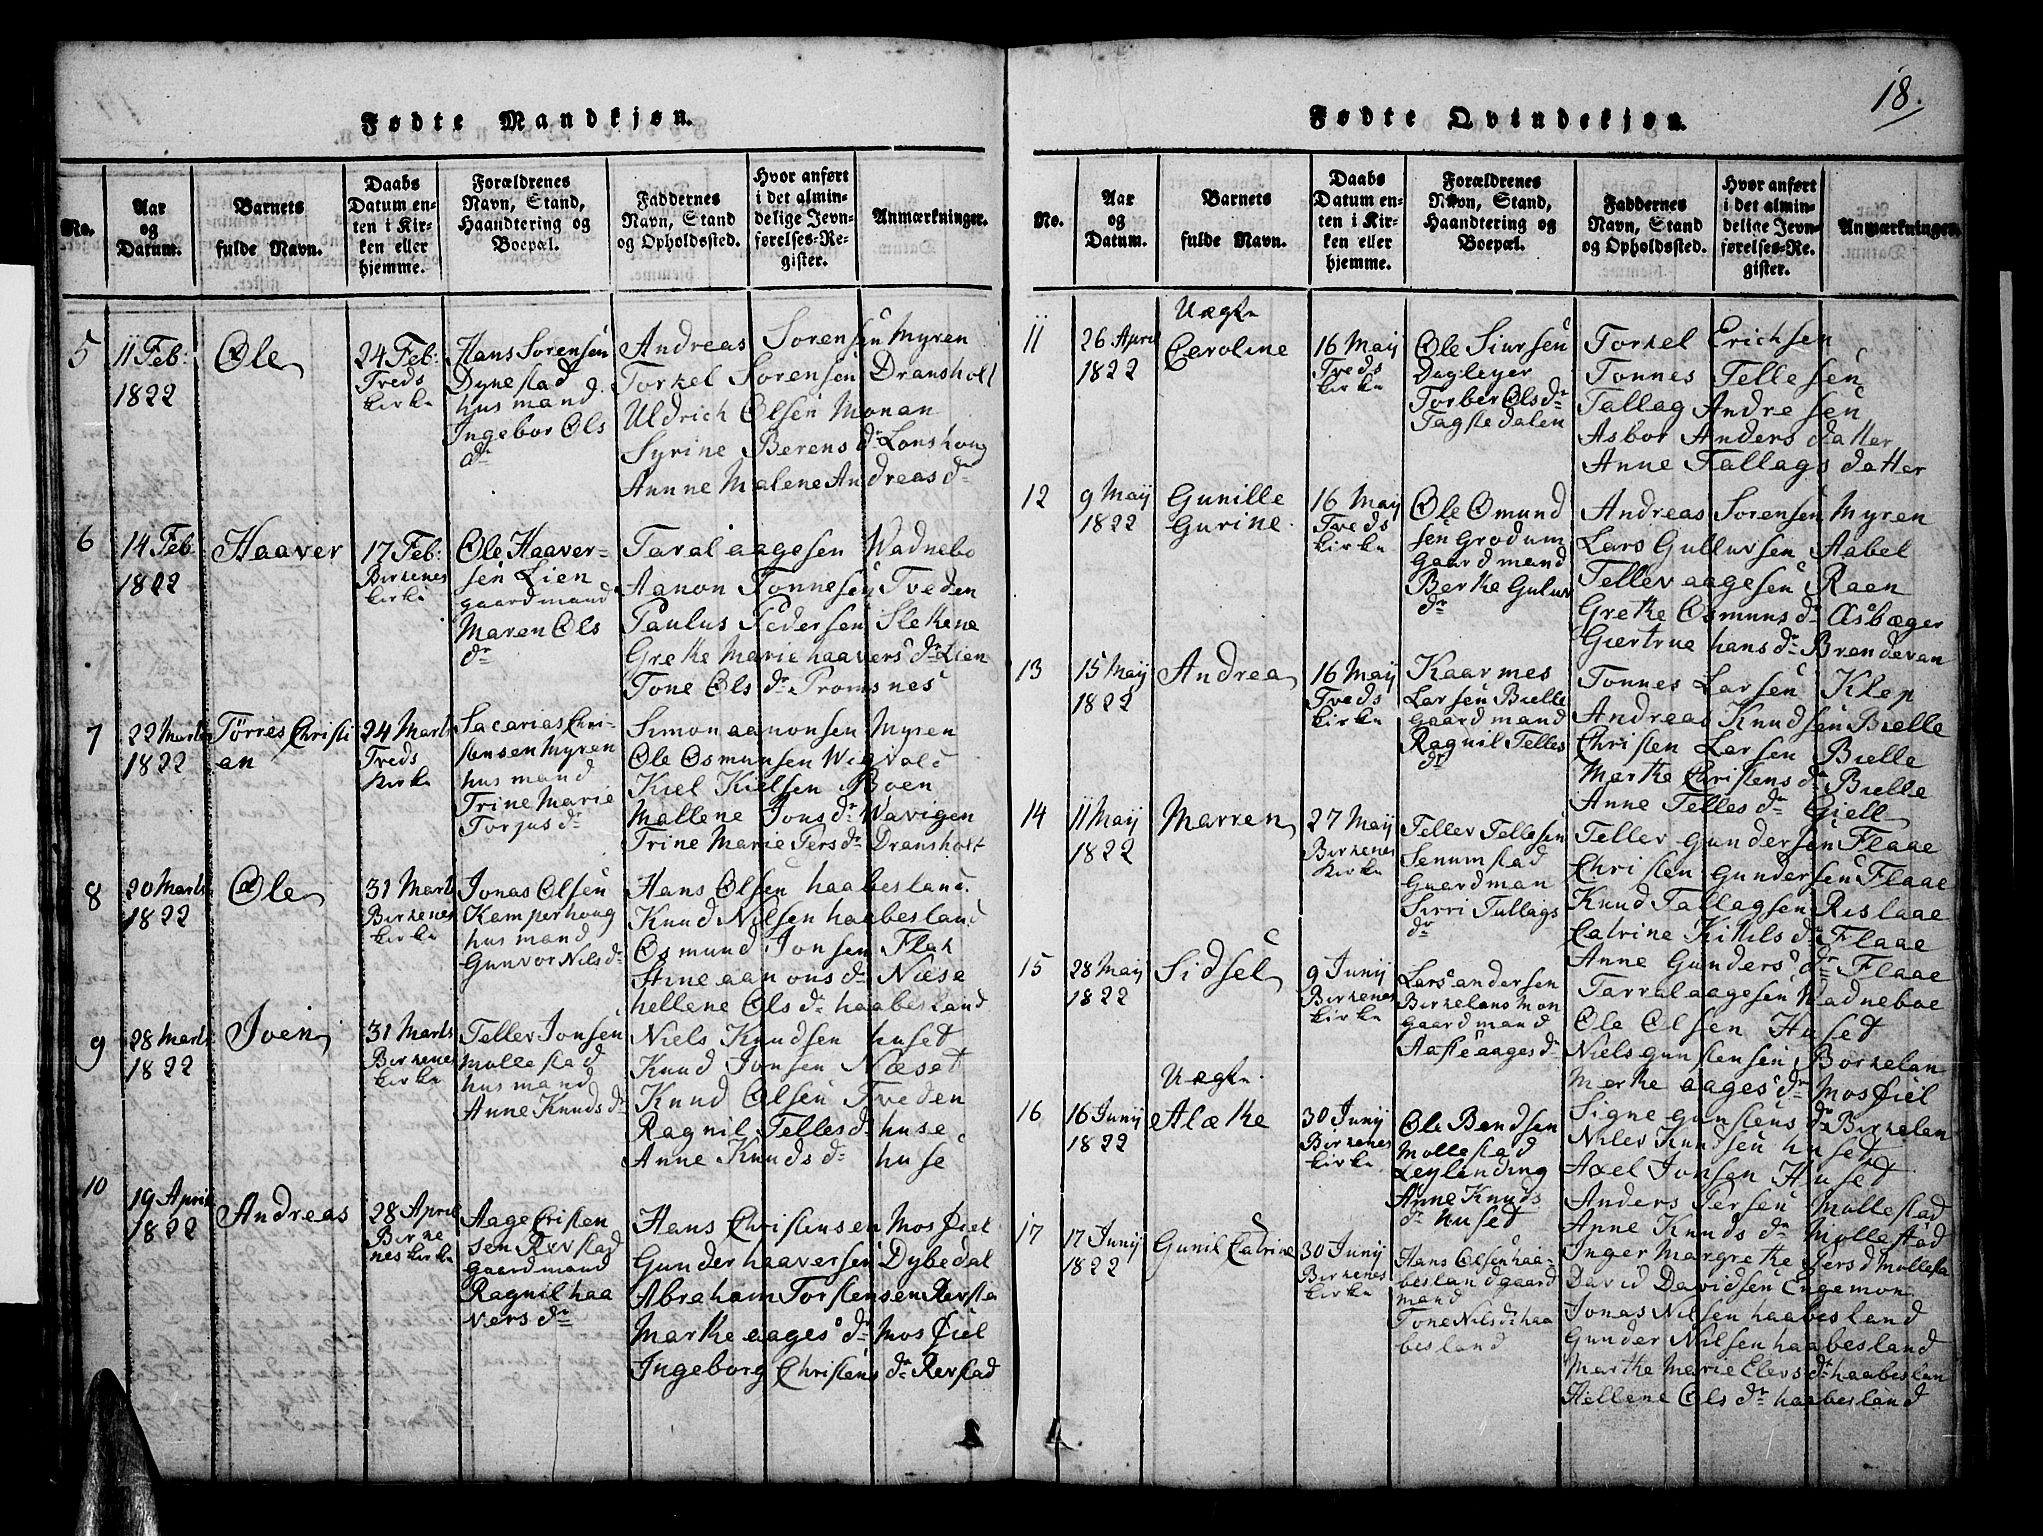 18.
Fødte Mandkjøn.
No.
Aar og Datum.
Barnets fulde Navn.
Daabs Datum enten i Kirken eller hjemme.
Forældrenes Navn, Stand, Haandtering og Boepæl.
Faddernes Navn, Stand og Opholdssted.
Hvor anført i det almindelige Jevnførelses-Register.
Anmærkninger.
5
11 Feb:
1822
Ole
24 Feb:
Treds
kirke
Hans Sorensen
Dynestad
husmand
Ingebor Ols
dr
Andreas Sorensen Myren
Torkel Sorensen Dransholt
Uldrich Olsen Monan
Syrine Berens dr Lonshoug
Annne Malene Andreas dr
6
14 Feb
1822
Haaver
17 Feb:
Birkenes
kirke
Ole Haaver-
sen Lien
gaardmand
Maren Ols
dr
Taral aagesen Wadnebo
Aanon Tonnesen Tveden
Paulus Pedersen Slekene
Grethe Marie haavers dr Lien
Tone Ols dr Promsnes
7
22 Marts
1822
Törres Christi
an
24 Marts
Treds
Kirke
Sacarias Chri-
stensen Myren
husmand
Trine Marie
Torjus dr
Simon aanonsen Myren
Ole Osmunsen Wigvald
Kiel Kielsen Boen
Mallene Jons dr Wavigen
Trine Marie Pers dr Dransholt
8
20 Marts
1822
Ole
31 Marts
Birkenes
kirke
Jonas Olsen
Kemperhoug
husmand
Gunvor Nils dr
Hans Olsen haabesland
Knud Nilsen haabesland
Osmund Jonsen Flak
Stine aanons dr Næse
hellene Ols dr haabesland
9
28 Marts
1822
Iven
31 Marts
Birkenes
kirke
Tellev Jonsen
Mollestad
husmand
Anne Knuds dr
Niels Knudsen huset
Knud Jonsen Næset
Knud Olsen Tveden
Ragnil Telles dr huse
Anne Knuds dr huse
10
19 April
1822
Andreas
28 April
Birke
nes kirke
Aage Cristen
sen Revstad
gaardmand
Ragnil haa
vers dr
Hans Christensen Mosfiel
Gunder haaversen Dybedal
Abraham Torstensen Revsta
Marthe aages dr Mosfiel
Ingeborg Christens dr Revstad
Fødte Qvindekjøn.
No.
Aar og Datum.
Barnets fulde Navn.
Daabs Datum enten i Kirken eller hjemme.
Forældrenes Navn, Stand, Haandtering og Boepæl.
Faddernes Navn, Stand og Opholdssted.
Hvor anført i det almindelige Jevnførelses-Register.
Anmærkninger.
11
26 April
1822
Uægte
Caroline
16 Maij
Treds
kirke
Ole Siursen
Dagleyer
Torber Ols dr
Tagstedalen
Torkel Erichsen
Tonnes Tellesen
Tallag Andresen
Asbor Anders datter
Anne Tallags datter
12
9 Maij
1822
Gunille
Gurine.
16 Maij
Treds
kirke
Ole Omund
sen Grodum
gaardmand
Berthe Guluv
dr
Andreas Sorensen Myren
Lars Gulluvsen Aabel
Tellev aagesen Raen
Grethe Osmuns dr Asbæger
Giertrue hans dr Brendevan
13
15 Maij
1822
Andrea
16 Maij
Treds
kirke
Kaarmes
Larsen Bielle
gaardmand
Ragnil Telles
dr
Tonnes Larsen Klep
Andreas Knudsen Bielle
Christen Larsen Bielle
Marthe Christens dr Bielle
Anne Telles dr Giell
14
11 Maij
1822
Marren
27 Maij
Birkenes
kirke
Tellev Tellesen
Senumstad
Gaardman
Sirri Tallags
dr
Tellev Gundersen Flaae
Christen Gundersen Flaae
Knud Tallagsen Rislaae
Catrine Kittils dr Flaae
Anne Gunders dr Flaae
15
28 Maij
1822
Sidsel
9 Junij
Birkenes
kirke
Lars andersen
Birkelans mon
gaardmand
Aaste aages dr
Tarral aagesen Wadneboe
Ole Olsen Huset
Niels gunstensen Borkelan
Merthe aages dr Mosfiel
Signe gunstens dr Birkelan
16
16 Junij
1822
Uægte.
Alæthe
30 Junij
Birkenes
kirke
Ole Bendsen
Mollestad
Leylending
Anne Knuds
dr Huset
Niles Knudsen huset
Axel Jonsen Huset
Anders Persen Mollestad
Anne Knuds dr Mollestad
Inger Margrethe Pers d Mollesta
17
17 Junij
1822
Gunil Catrine
30 Junij
Birkenes
kirke
Hans Olsen haa-
besland gaard
mand
Tone Nils dr haa
besland
David Davidsen Engemon
Jonas Nilsen haabesland
Gunder Nilsen haabesland
Marthe Marie Elevs dr haabeslan
Hellene Ols dr haabesland